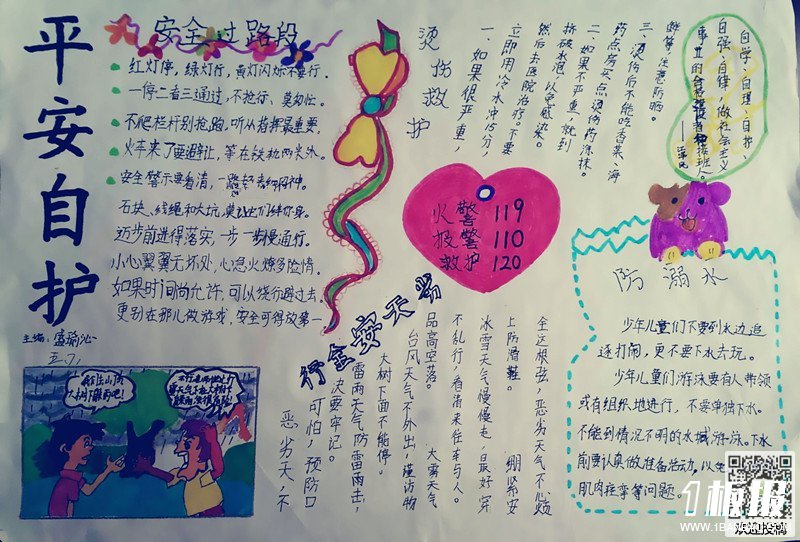 平安自护
安全过路段
红灯停，绿灯行，黄灯闪烁不要行。
一停二看三通过，不抢行、莫匆忙。
不爬栏杆别抢跑，听从指挥最重要。
火车来了要避让，等在铁轨两米外。
安全警示要看清，
石块、线绳和大坑，莫让它们绊你身。
迈步前进得落实，一步一步慢通行。
小心翼翼无坏处，心急火燎多险情。
如果时间尚允许，可以绕行避过去。
更别在那儿做游戏，安全可得放第一。
主编：
烫伤救护
一、如果很严重，
立即用冷水冲15分，
然后去医院治疗。不要
挤破水泡，以免感染。
二、如果不严重，就到
药店房买点烫伤药涂抹。
三、烫伤后不能吃香菜、海
鲜等，注意防晒。
自学、自理、自护、
自强、自律，做社会主义
事业的合格建设者和接班人。
——江泽民
火警 119
报警 110
救护 120
防溺水
少年儿童们不要到水边追
逐打闹，更不要下水去玩。
少年儿童们游泳要有人带领
或有组织地进行，不要单独下水。
不能到情况不明的水域游泳。下水
前要认真做准备活动，以免
肌肉痉挛等问题。
恶劣天安全行
恶劣天，不
可怕，预防口
决要牢记。
雷雨天气防雷雨击，
大树下面不能停。
台风天气不外出，谨防物
品高空落。
大雾天气
不乱行，看清来往车与人。
冰雪天气慢慢走，最好穿
上防滑鞋。
绷紧安
全这根弦，恶劣天气不心烦
1板报
WWW.1BANBAO.COM
欢迎投稿